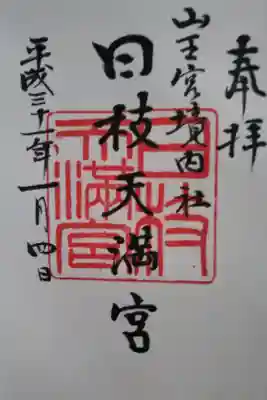 奉拝
山王宮境内社
日枝天満宮
平成三十一年一月四日